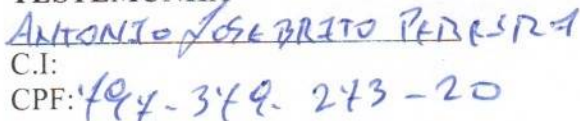 ANTONIO JOSE BRITO PEREIRA
C.I:
CPF: 797-379-273-20